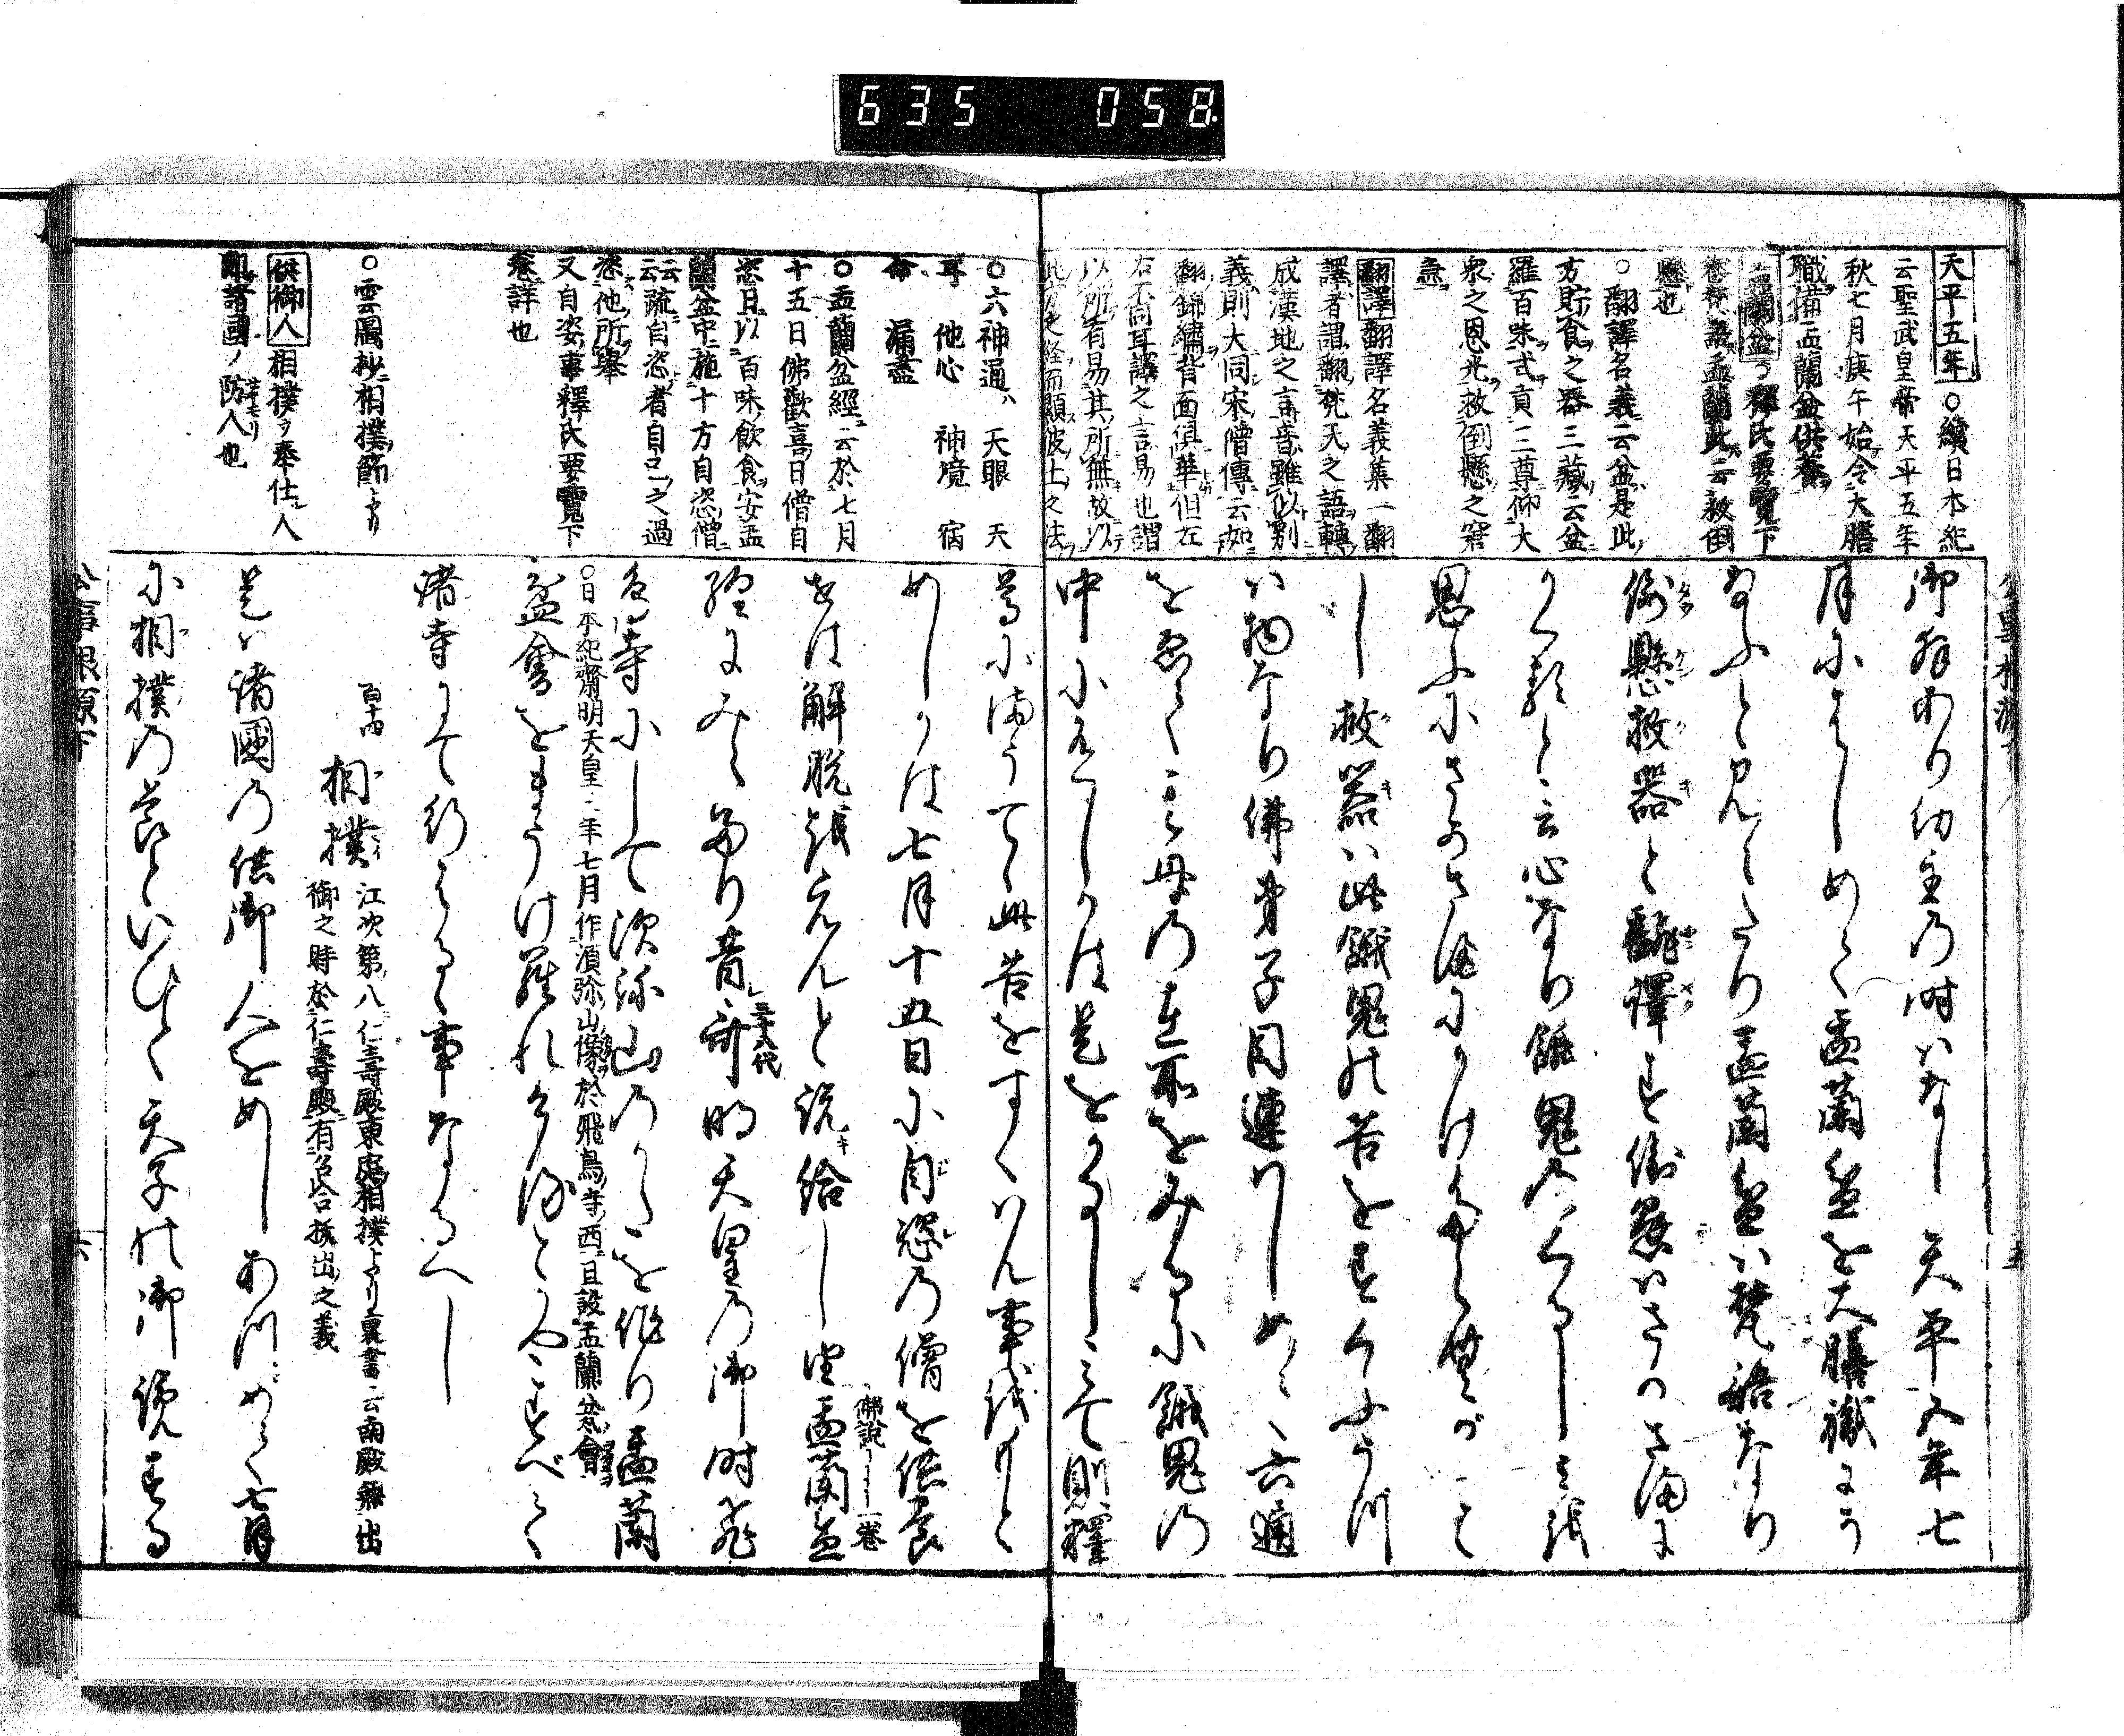 635 058
天平五年○續日本紀
云聖武皇帝天平五年
秋七月庚午始令大膳
職備盂蘭盆供養
盂蘭盆 釋氏要覽下
云梵語盂蘭此云救倒
懸也
○翻譯名義云盆是此
方貯食之器三藏云盆
羅百味式貢三尊仰大
衆之恩光救倒懸之窘
急
翻譯 翻譯名義集一翻
譯者謂翻梵天之語轉
成漢地之言音雖似別
義則大同宋僧傳云如
翻錦繡背面俱華但左
右不同耳譯之言易也謂
以所有易其所無故以
此方之經而顯彼土之法
御拜あり幼主の時はなし天平五年七
月にはしめて盂蘭盆を大膳職にそ
なふと見えたり盂蘭盆は梵語なり
倒懸救器と翻譯す倒懸はさかさまに
かくると云心なり餓鬼のくるしみを
思ふにさかさまにかけたらんがごと
し救器は此餓鬼の苦をすくふうつ
は物なり佛弟子目連はしめて六通
をゑて母の在所をみるに餓鬼の
中に有しかは是をかなしみて則釋
○六神通ハ 天眼 天
耳 他心 神境 宿
命 漏盡
○盂蘭盆經云於七月
十五日佛歡喜日僧自
恣日以百味飲食安盂
蘭盆中施十方自恣僧
云云疏自恣者自己之過
恣他所擧
又自恣事釋氏要覽下
卷詳也
○雲圖抄相撲節より
供御人 相撲ヲ奉仕人
即諸國ノ防人也
尊にまうてて此苦をすくはん事をもと
めしかは七月十五日に自恣の僧を供養
せは解脱をえんと説給し也盂蘭盆
佛説 一卷
經にみえたり昔齊明天皇の御時飛
三十八代
鳥寺にして須弥山のかたを作り盂蘭
○日本紀齋明天皇三年七月作須弥山像於飛鳥寺西且設盂蘭盆會
盆會をまうけ羅れけるとかやすべて
諸寺にて行はるる事なるへし
百十四 相撲 江次第八仁壽殿東庭相撲より裏書云南殿無出
御之時於仁壽殿有召合拔出之義
是は諸國の供御人をめしあつめて七月
に相撲の節といひて天子の御覽する
公事根源下 六